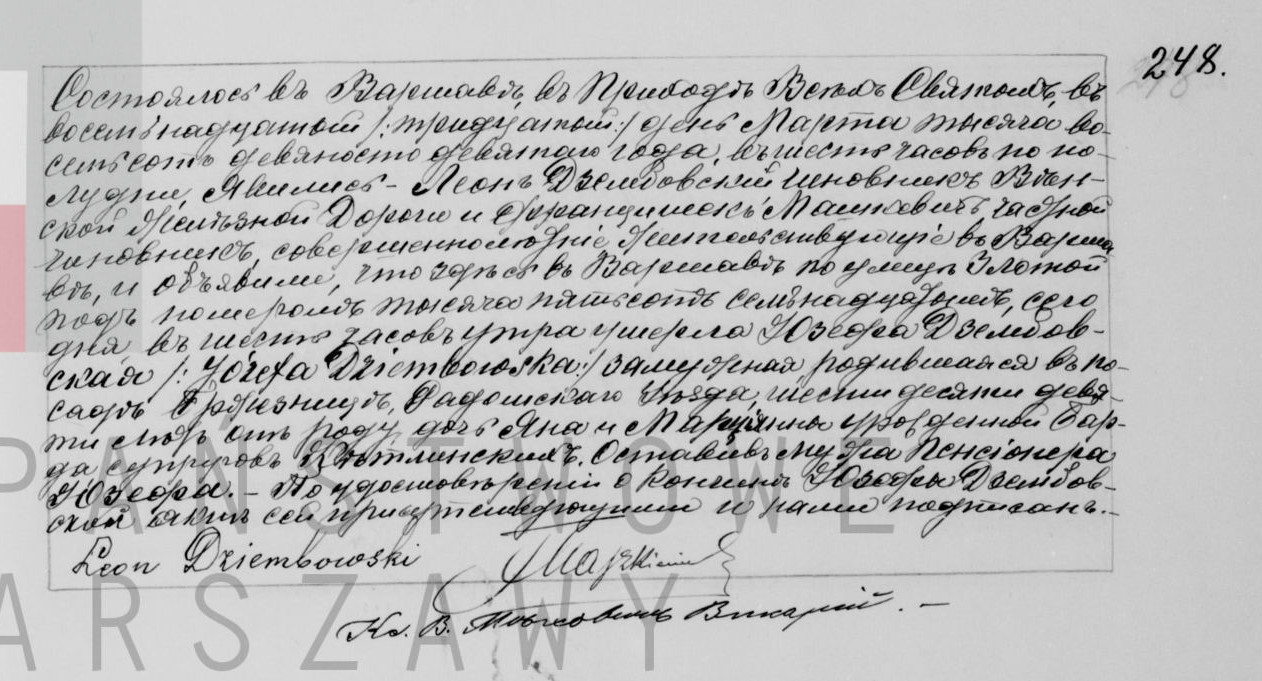 248.
Состоялось въ Варшавѣ, въ Приходѣ Всѣхъ Святыхъ, въ
восемьнадцатый /:тридцатый:/ день Марта тысяча во-
семьсотъ девяносто девятаго года, въ шесть часовъ по по-
лудни, Явились – Леонъ Дзембовскій чиновникъ Вѣн-
ской Желѣзной Дороги и Францишекъ Машкевичъ, частной
чиновникъ, совершеннолѣтніе жительствующіе въ Варша
вѣ, и объявили, что здѣсь въ Варшавѣ по улицѣ Злотой
подъ номеромъ тысяча пятьсотъ семьнадцатымъ, сего
дня, въ шесть часовъ утра умерла Юзефа Дзембов-
ская /: Józefa Dziembowska:/ замужная родившаяся въ по-
садѣ Уѣзда, шестидесяти девя-
ти лѣтъ отъ роду, дочь Яна и Маріянны урожденной Бар-
да супруговъ Оставивъ мужа Пенсіонера
Юзефа. – По удостовѣреніи о кончинѣ Юзефы Дзембов-
ской актъ сей присутствующими и нами подписанъ. –
Leon Dziembowski
Кс. В. Викарій. –
PAŃSTWOWE
WARSZAWY